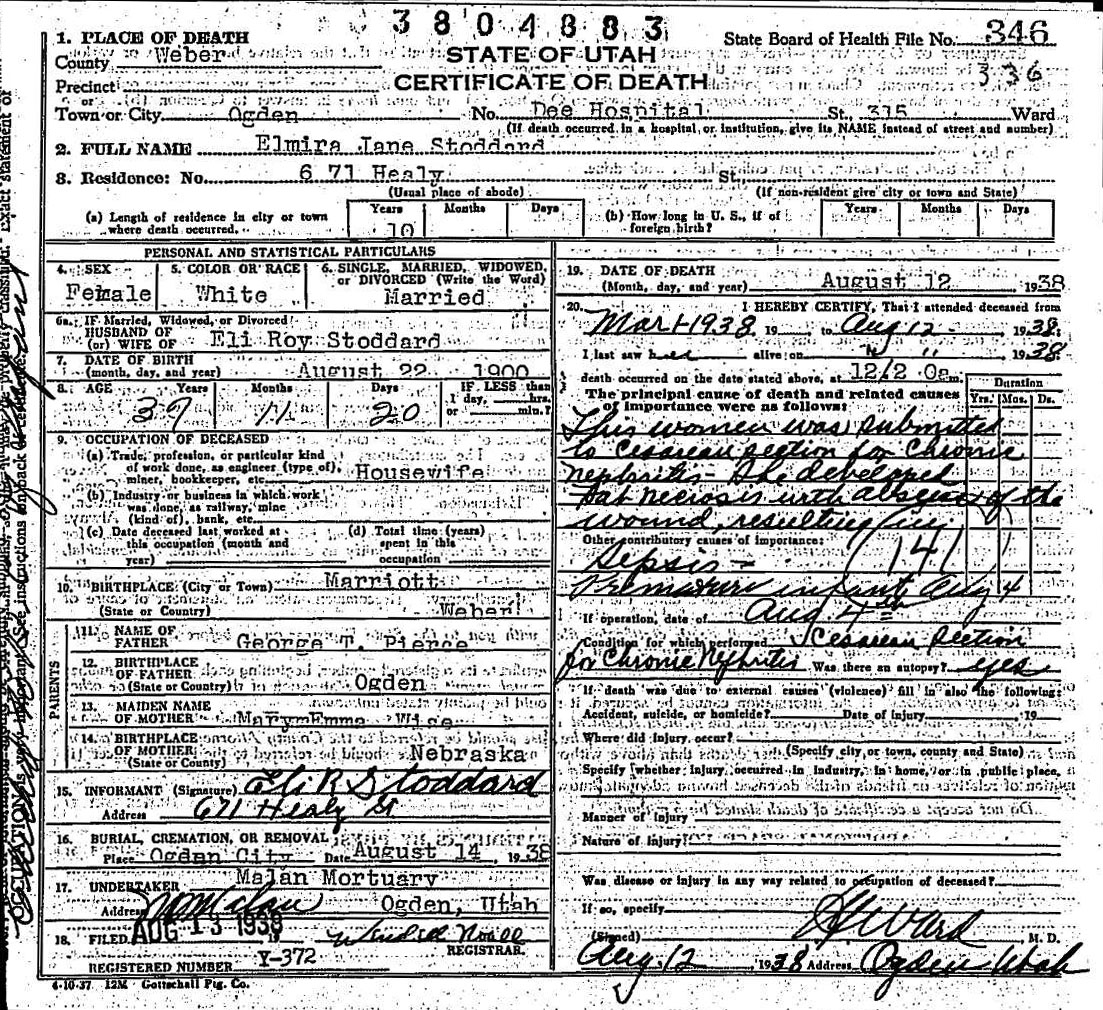 3804883
1. PLACE OF DEATH
State Board of Health File No. 346
County Weber
STATE OF UTAH
336
Precinct
CERTIFICATE OF DEATH
or
Town or City Ogden No. Dee Hospital St. 315 Ward
(If death occurred in a hospital or institution, give its NAME instead of street and number)
2. FULL NAME Elmira Jane Stoddard
3. Residence: No. 671 Healy St.
(Usual place of abode) (If non-resident give city or town and State)
(a) Length of residence in city or town where death occurred. Years 10 Months Days
(b) How long in U. S., if of foreign birth? Years Months Days
PERSONAL AND STATISTICAL PARTICULARS
4. SEX Female
5. COLOR OR RACE White
6. SINGLE, MARRIED, WIDOWED, or DIVORCED (Write the Word) Married
6a. IF Married, Widowed, or Divorced
HUSBAND OF
(or) WIFE OF Eli Roy Stoddard
7. DATE OF BIRTH
(month, day, and year) August 22 1900
8. AGE Years 37 Months 11 Days 20 IF LESS than 1 day, hrs. or min.?
9. OCCUPATION OF DECEASED
(a) Trade, profession, or particular kind
of work done, as engineer (type of),
miner, bookkeeper, etc. Housewife
(b) Industry or business in which work
was done, as railway, mine
(kind of), bank, etc.
(c) Date deceased last worked at
this occupation (month and
year)
(d) Total time (years)
spent in this
occupation
10. BIRTHPLACE (City or Town) Marriott
(State or Country) Weber
PARENTS
11. NAME OF
FATHER George T. Pierce
12. BIRTHPLACE
OF FATHER
(State or Country) Ogden
13. MAIDEN NAME
OF MOTHER Mary Emma Wise
14. BIRTHPLACE
OF MOTHER
(State or Country) Nebraska
15. INFORMANT (Signature) Eli R Stoddard
Address 671 Healy St
16. BURIAL, CREMATION, OR REMOVAL
Place Ogden City Date August 14, 1938
17. UNDERTAKER Malan Mortuary
Address Ogden, Utah
AUG 13 1938
18. FILED
REGISTRAR.
REGISTERED NUMBER Y-372
4-10-37 12M Gottschall Ptg. Co.
19. DATE OF DEATH
(Month, day, and year) August 12 1938
20. I HEREBY CERTIFY, That I attended deceased from
Mar 1-1938 19 to Aug 12 - 1938
I last saw her alive on " " 1938
death occurred on the date stated above, at 12/20a m.
Duration
Yrs. Mos. Ds.
The principal cause of death and related causes
of importance were as follows:
This women was submitted
to Cesarean section for Chronic
Nephritis - She developed
fat necrosis with abscess of the
wound, resulting in
Other contributory causes of importance:
Sepsis - 141
Premature infant Aug 4
If operation, date of Aug 4th
Condition for which performed Cesarean Section
for Chronic Nephritis Was there an autopsy? yes
If death was due to external causes (violence) fill in also the following:
Accident, suicide, or homicide? Date of injury 19
Where did injury occur?
(Specify city or town, county and State)
Specify whether injury occurred in industry, in home, or in public place,
Manner of injury
Nature of injury
Was disease or injury in any way related to occupation of deceased?
If so, specify
(Signed) Ward M. D.
Aug 12, 1938 Address Ogden Utah